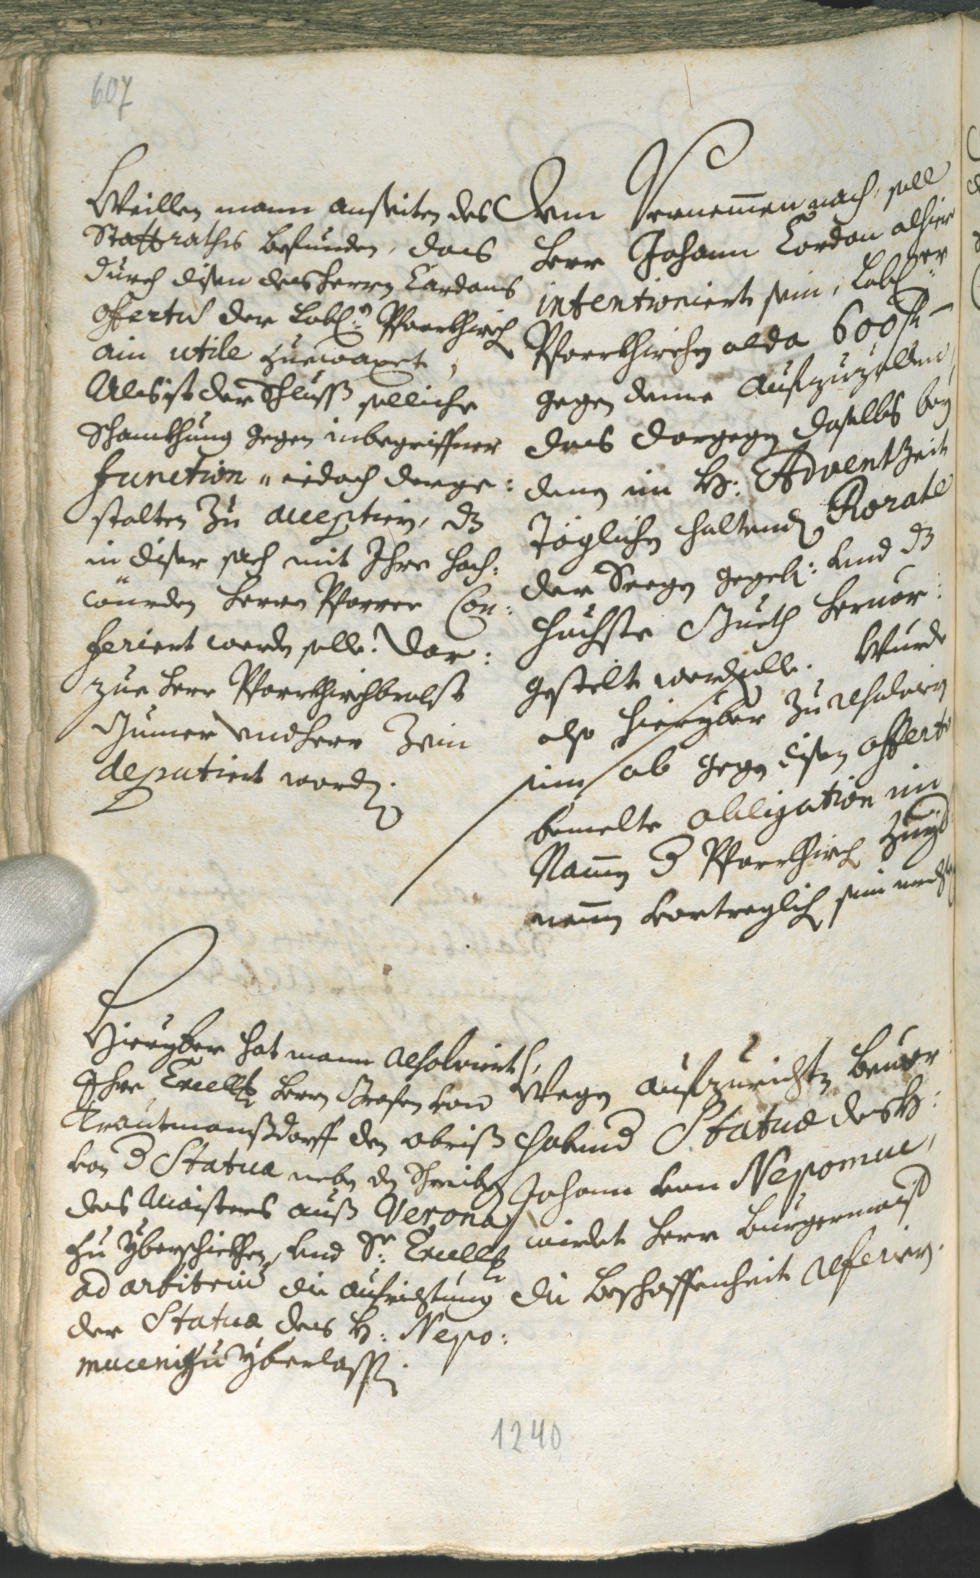 607
Weillen mann anseiten des
Stattraths befunden, dass
durch disen des Herrn Cardans
offertus der Löbl: Pfarrkhirch
ain utile zuewaxet,
Als ist der Schluss solliche
Schankhung gegen inbegriffner
function iedoch derge:
stalten zu acceptiern, dz
in diser sach mit Ihro Hoch:
würden Herrn Pfarrer Con:
feriert werden solle. Dar:
zue Herr Pfarrkhirchbrobst
Gumer und Herr Zein
deputiert worden.
Dem Vernemmen nach, soll
Herr Johann Cardan alhier
intentioniert sein, Löbl: er
Pfarrkhirchen alda 600 f
gegen deme aufzuzöllen,
dass dargegen daselbs bey
denen im H: Advent Zeit
täglichen haltenden Rorate
der Seegen gegeben: und dz
höchste Gueth hervor:
gestelt werden solle. Wurde
also hieryber zu resolviern
sein, ob gegen disen offerto
bemelte obligation im
Namen der Pfarrkhirch
nemmen vorträglich sein
Hieryber hat mann resolvierth,
Ihro Excellz Herrn Grafen von
Trautmanstorff den abriss
von der Statua neben den Schreiben
des Maisters auss Verona
zu yberschickhen, und Sr: Excellz
ad arbitrium die aufrichtung
der Statua des H: Nepo:
muceni zu yberlassen.
Wegen aufzurichten bevor
habender Statua des H:
Johann von Nepomuc,
wirdet Herr Burgermaister
die Beschaffenheit referiern.
1240